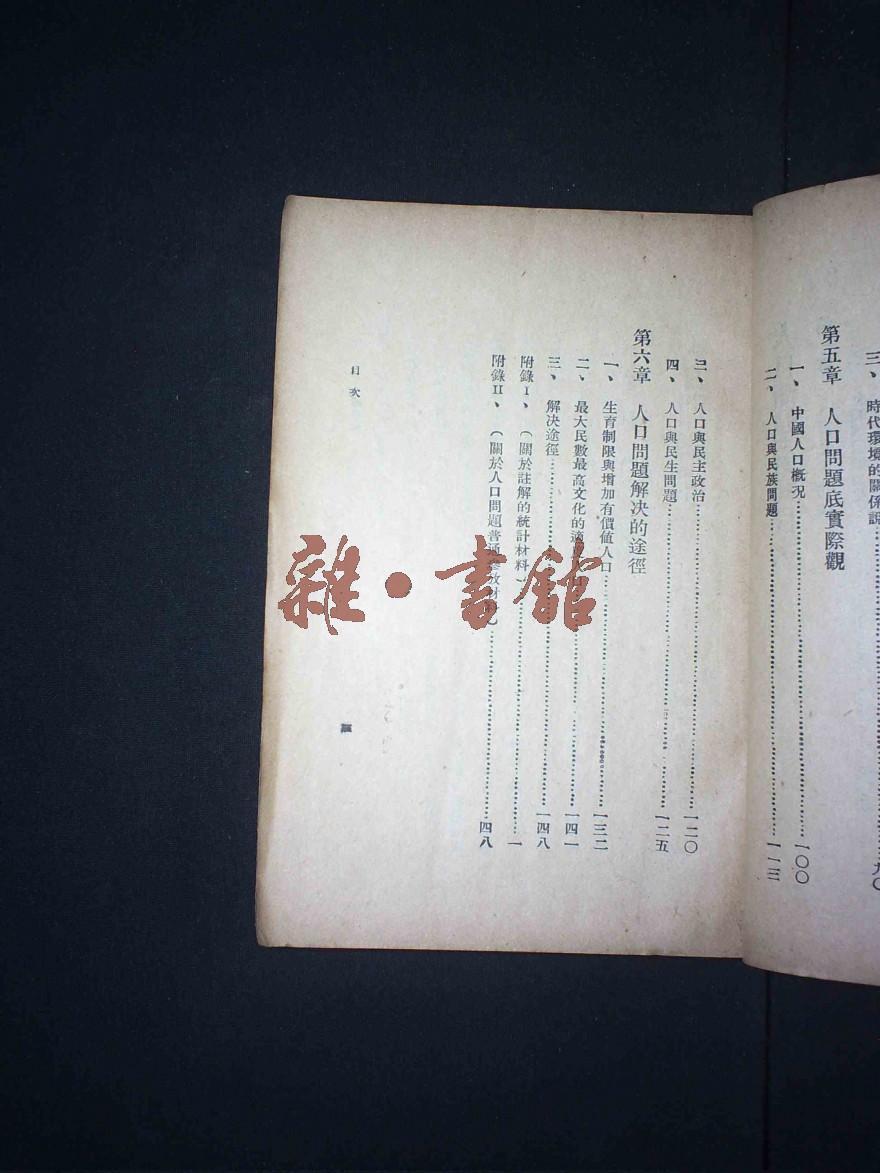 三、時代環境的關係說……九〇
第五章 人口問題底實際觀
一、中國人口概況……一〇〇
二、人口與民族問題……一一三
三、人口與民主政治……一二〇
四、人口與民生問題……一二五
第六章 人口問題解決的途徑
一、生育制限與增加有價値人口……一三二
二、最大民數最高文化的適……一四一
三、解決途徑……一四八
附錄I、（關於註解的統計材料）……一
附錄II、（關於人口問題普通參攷材料）……四八
目次
雜·書館